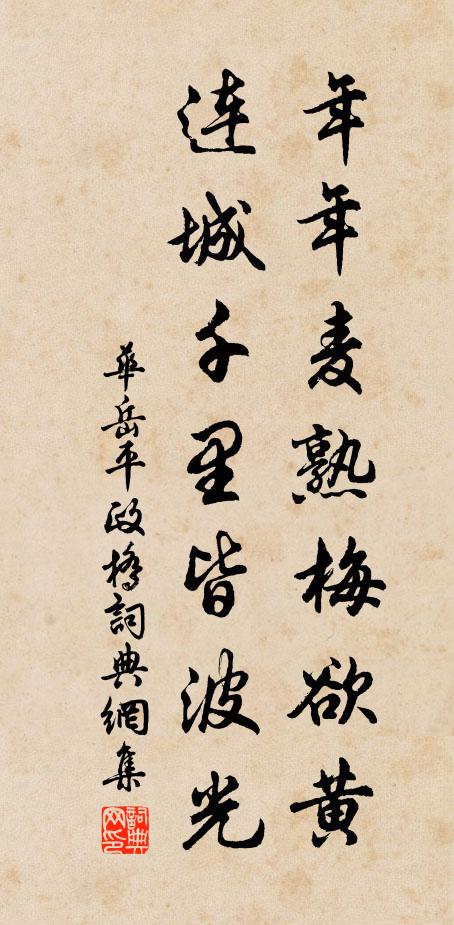 年年麦熟梅欲黄
連城千里皆波光
華岳平政橋詞典網集
詞典
网印